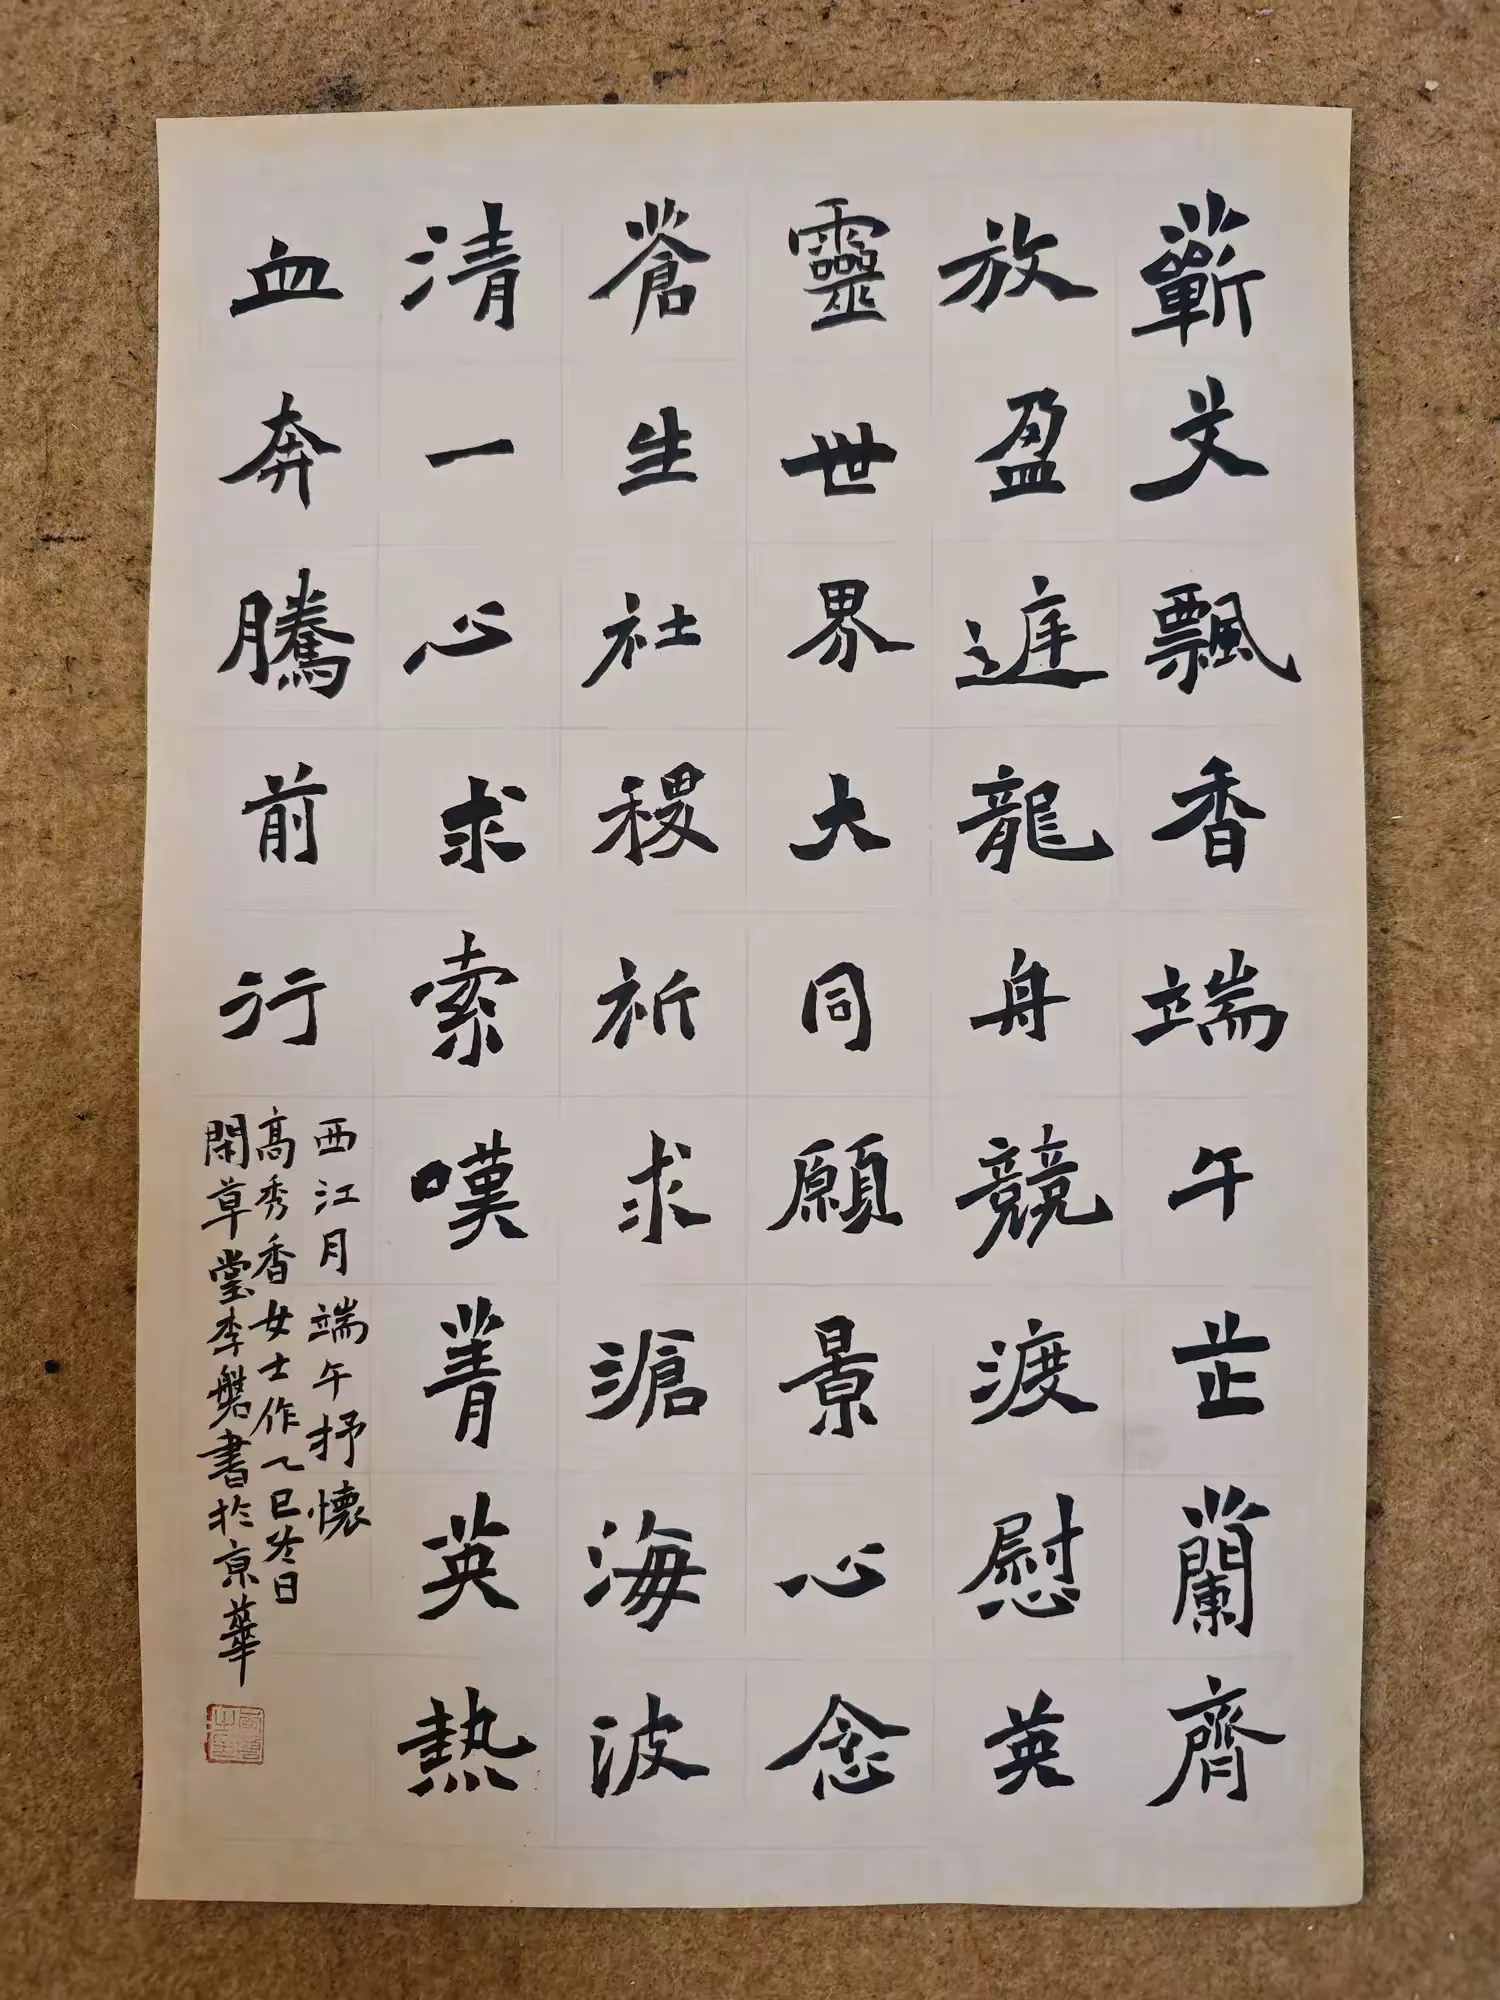 蘄艾飄香端午芷蘭齊
放盈庭龍舟競渡慰英
靈世界大同願景心念
蒼生社稷祈求滄海波
清一心求索嘆菁英熱
血奔騰前行
西江月端午抒懷
高秀香女士作乙巳冬日
閑草堂李磐書於京華